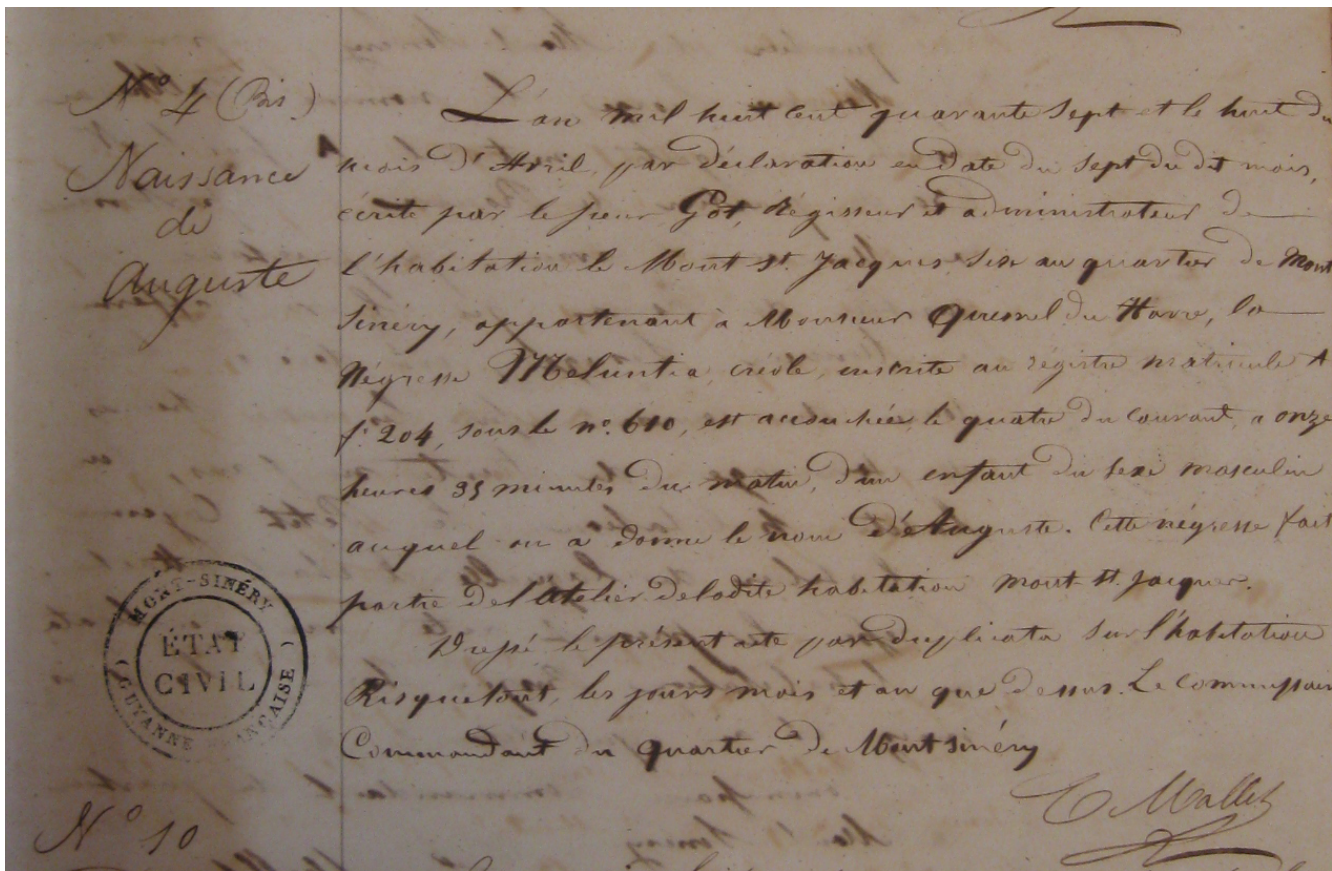 N° 4 (Bis.)
Naissance
de
Auguste
L'an mil huit cent quarante sept et le huit du
mois d'Avril, par déclaration en date du sept du dit mois,
écrite par le sieur Got, Régisseur et administrateur de
l'habitation le Mont St. Jacques, sise au quartier de Mont
Sinéry, appartenant à Monsieur Quesnel du Havre, la
Négresse Meluntia, créole, inscrite au régistre matricule A
f° 204, sous le n°. 610, est accouchée, le quatre du courant, a onze
heures 35 minutes du matin, d'un enfant du sexe masculin
auquel on a donné le nom d'Auguste. Cette négresse fait
partie de l'Atelier de ladite habitation Mont St. Jacques.
Dressé le présent acte par duplicata sur l'habitation
Risquetout, les jours mois et an que dessus. Le Commissaire
Commandant du quartier de Montsinéry
MONT-SINÉRY
ÉTAT
CIVIL
GUYANNE FRANÇAISE
E Mallet
N° 10